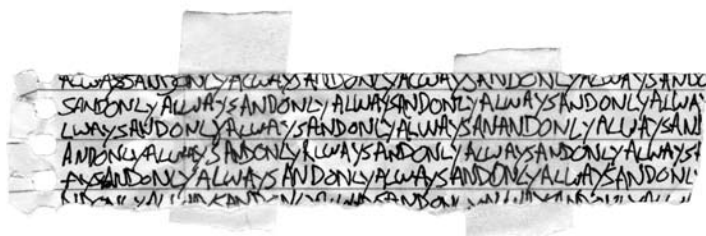 ALWAYSANDONLYALLWAYSANDONLYALLWAYSANDONLYALWAYSANDO
SANDONLYALLWAYSANDONLYALLWAYSANDONLYALLWAYSANDONLYALLWA
LWAYSANDONLYALLWAYSANDONLYALLWAYSANANDONLYALLWAYSAN
ANDONLYALLWAYSANDONLYALLWAYSANDONLYALLWAYSANDONLYALLWAYSA
AYSANDONLYALLWAYSANDONLYALLWAYSANDONLYALLWAYSANDONLY